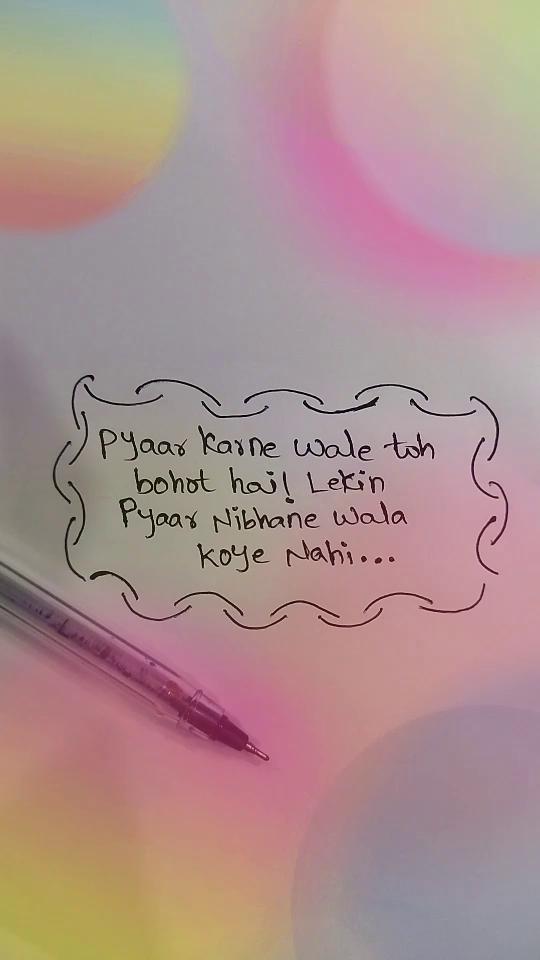 Pyaar Karne wale toh
bohot hai! Lekin
Pyaar Nibhane wala
Koye Nahi...